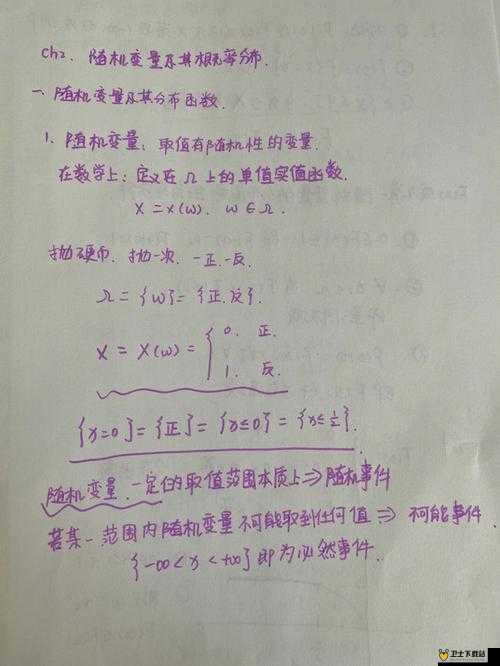 Ch2. 随机变量及其概率分布.
一、随机变量及其分布函数.
1. 随机变量: 取值有随机性的变量.
在数学上: 定义在 Ω 上的单值实值函数.
X = X(ω). ω ∈ Ω.
抛硬币. 抛一次. 一正.一反.
Ω = {ω} = {正.反}.
X = X(ω) = { 0. 正.
1. 反.
{x=0} = {正} = {x≤0} = {x≤1/2}.
随机变量.一定的取值范围本质上⇒随机事件
若某一范围内随机变量不可能取到任何值 ⇒ 不可能事件.
{-∞<x<+∞} 即为必然事件.
卫士下载站